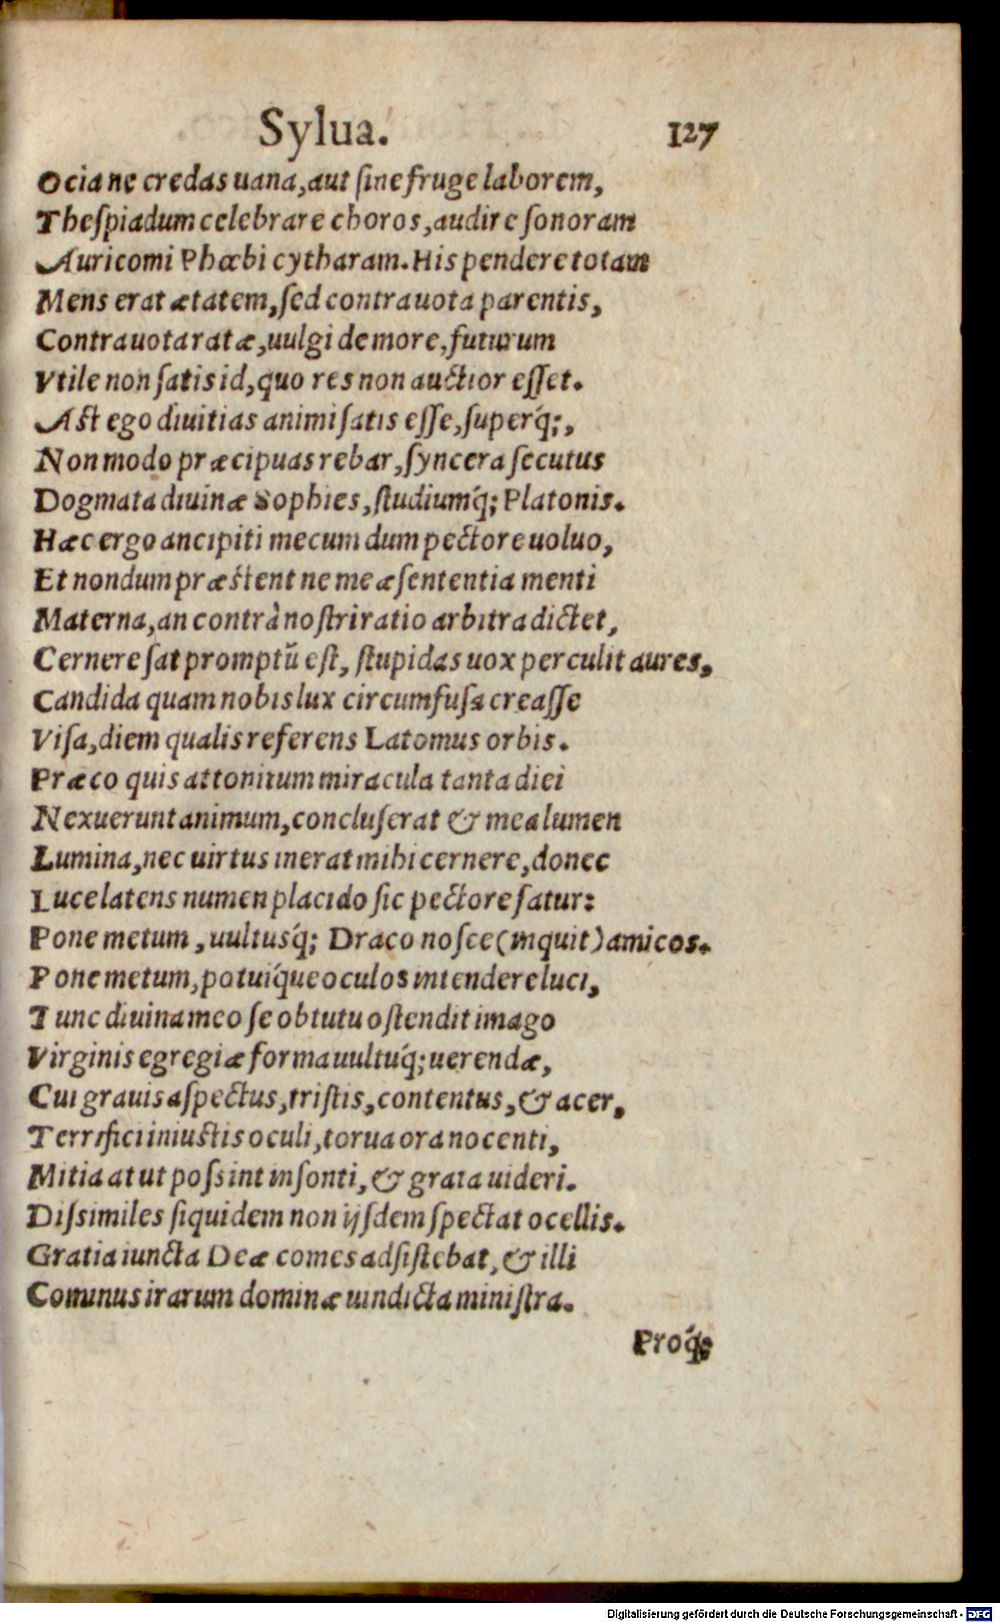 Sylua. 127
Ocia ne credas uana, aut ſine fruge laborem,
Theſpiadum celebrare choros, audire ſonoram
Auricomi Phœbi cytharam. His pendere totam
Mens erat ætatem, ſed contra uota parentis,
Contra uota ratæ, uulgi de more, futurum
Vtile non ſatis id, quo res non auctior eſſet.
Aſt ego diuitias animi ſatis eſſe, ſuperq́;,
Non modo præcipuas rebar, ſyncera ſecutus
Dogmata diuinæ Sophies, ſtudiumq́; Platonis.
Hæc ergo ancipiti mecum dum pectore uoluo,
Et nondum præſtent ne meæ ſententia menti
Materna, an contrà noſtri ratio arbitra dictet,
Cernere ſat promptũ eſt, ſtupidas uox perculit aures,
Candida quam nobis lux circumfuſa creaſſe
Viſa, diem qualis referens Latomus orbis.
Præco quis attonitum miracula tanta diei
Nexuerunt animum, concluſerat & mea lumen
Lumina, nec uirtus inerat mihi cernere, donec
Luce latens numen placido ſic pectore fatur:
Pone metum, uultusq́; Draco noſce (inquit) amicos.
Pone metum, potuíque oculos intendere luci,
Tunc diuina meo ſe obtutu oſtendit imago
Virginis egregiæ forma uultuq́; uerendæ,
Cui grauis aſpectus, triſtis, contentus, & acer,
Terrifici iniuſtis oculi, torua ora nocenti,
Mitia at ut poſsint inſonti, & grata uideri.
Diſsimiles ſiquidem non ijſdem ſpectat ocellis.
Gratia iuncta Deæ comes adſiſtebat, & illi
Cominus irarum dominæ uindicta miniſtra.
Proq́;
Digitalisierung gefördert durch die Deutsche Forschungsgemeinschaft - DFG